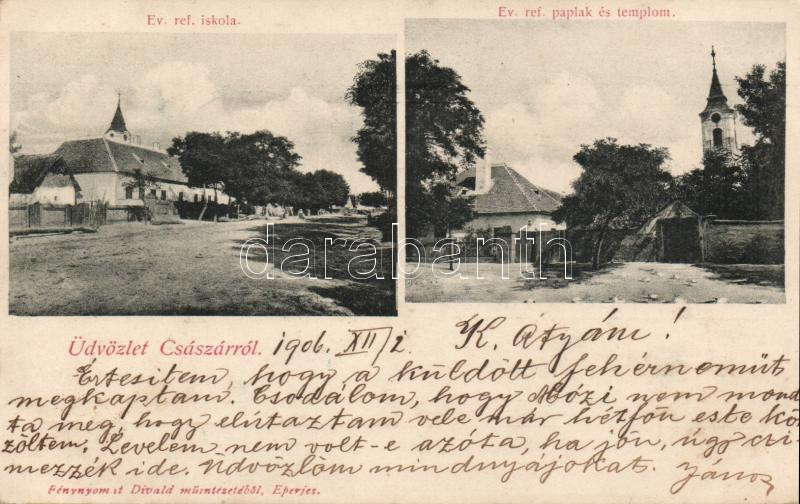 Ev. ref. iskola.
Ev. ref. paplak és templom.
darabanth
Üdvözlet Császárról. 1906. XII/2.
K. Atyám!
Értesitem, hogy a küldött fehérneműt
megkaptam. Csodálom, hogy Mózi nem mond
ta meg, hogy elútaztam vele már hétfőn este kö
zöltem. Levelem nem volt-e azóta, ha jön, úgy czi
mezzék ide. Üdvözlöm mindnyájokat. János
Fénynyomat Divald műintézetéből, Eperjes.